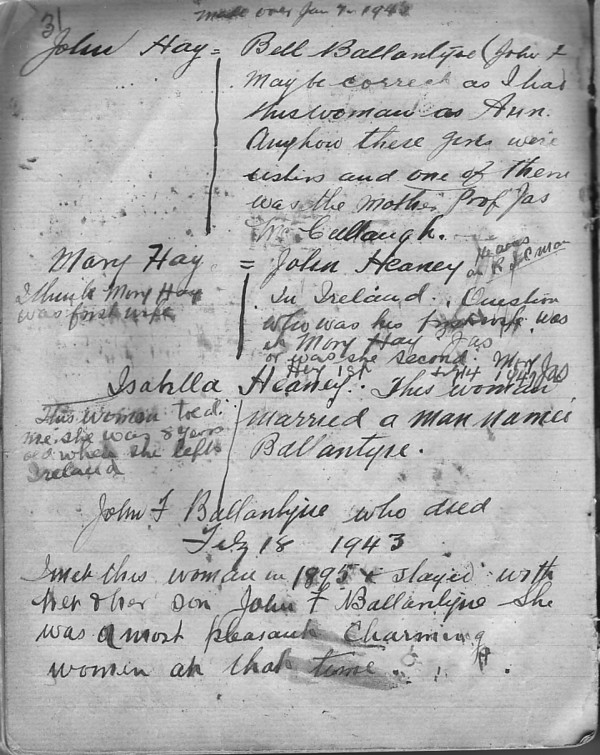 31
made over Jan 7 - 1943
John Hay = Bell Ballantyne (John F
may be correct as I had
this woman as Ann.
Anyhow these girls were
sisters and one of them
was the mother Prof Jas
Mc Cullaugh.
Mary Hay = John Heaney he was
an R.I.C man
I think Mary Hay
was first wife
In Ireland. Question
who was his first wife was
it Mary Hay Jas
or was she second.
Isabella Heaney. This woman
married a man named
Ballantyne.
This woman told
me she was 8 years
old when she left
Ireland
John F Ballantyne who died
Feb 18 1943
I met this woman in 1895 & stayed with
her & her son John F Ballantyne She
was a most pleasant Charming
women at that time.